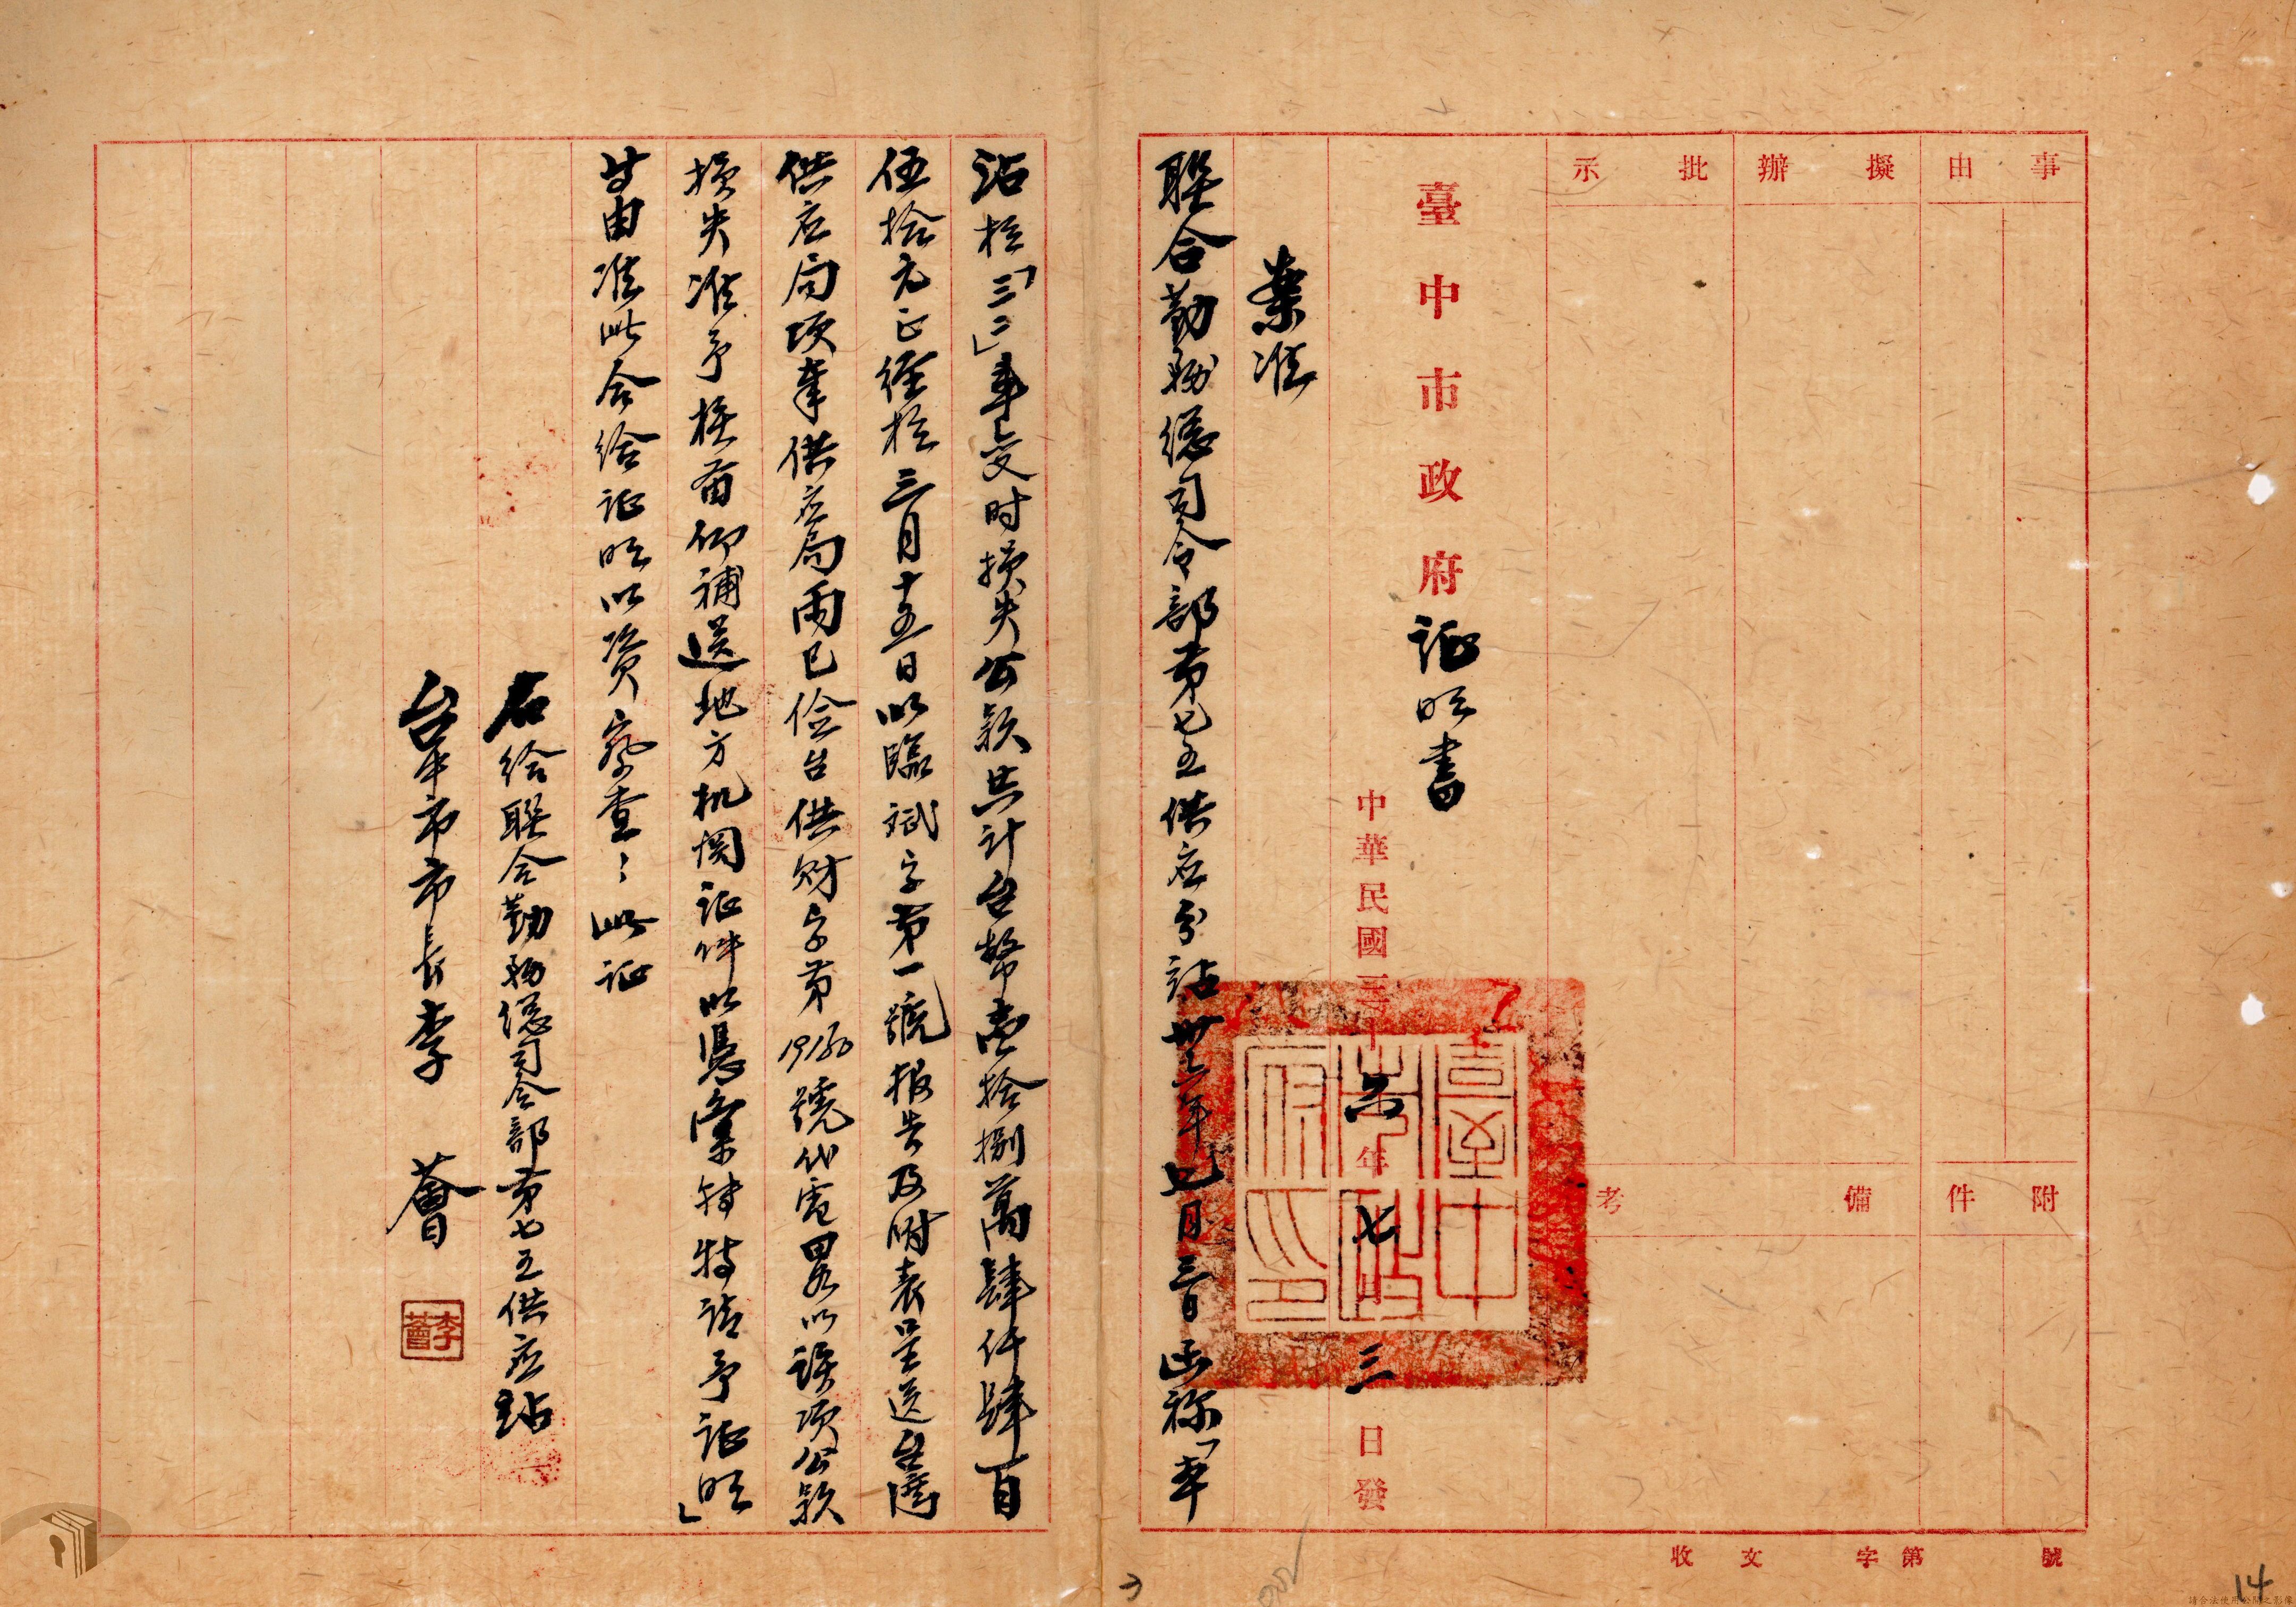 事由
擬辦
批示
附件
備考
收文 字第 號
臺中市政府证明書
中華民國三十六年七月三日發
臺中市政府印
案准
聯合勤務總司令部第七五供应分站卅六年七月三日函称「本
站於「三二」事变时損失公款共計台幣壹拾捌萬肆仟肆百
伍拾元正經於三月十五日以臨斌字第一號报告及附表呈送台灣
供应局項奉供应局兩巳儉台供財字第19150號代電畧以該項公款
損失准予核备仰補送地方机関证件以憑彙轉特请予证明」
廿由准此合給证明以資察查〻此证
右給聯合勤務總司令部第七五供应站
台中市市長李薈
李薈
14
請合法使用公開之影像